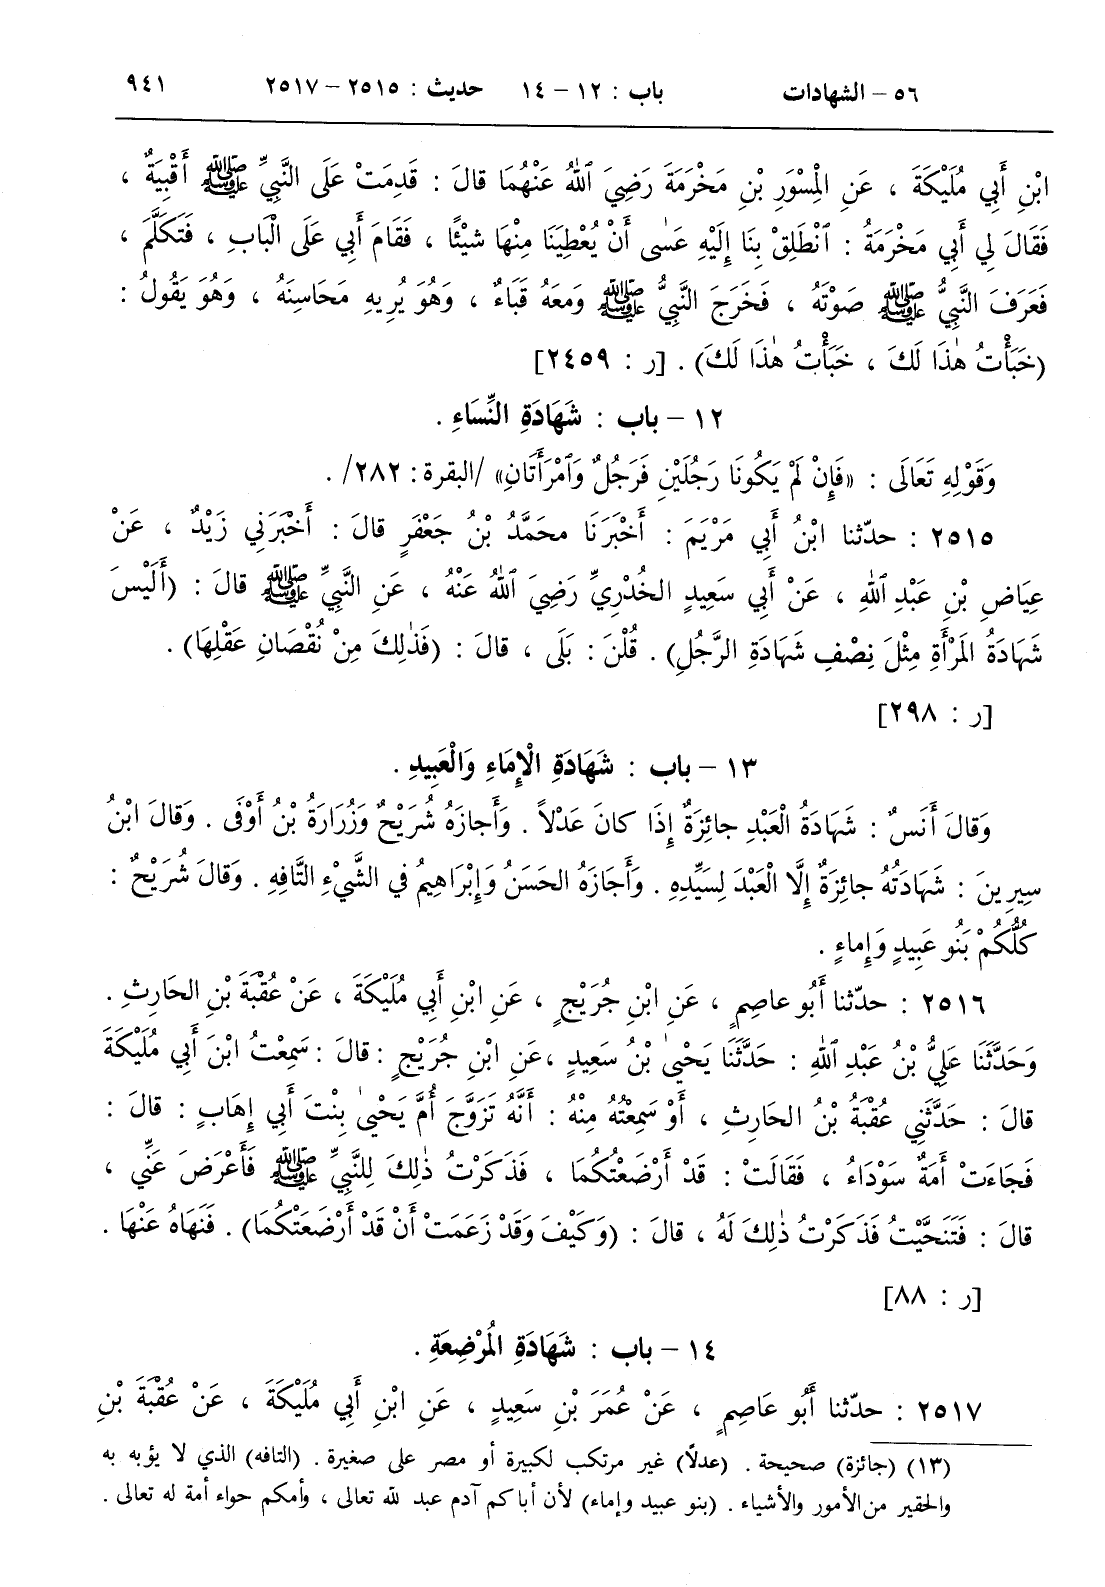 ٥٦ – الشهادات باب : ١٢ – ١٤ حديث : ٢٥١٥ – ٢٥١٧ ٩٤١
ابْنِ أَبِي مُلَيْكَةَ ، عَنِ الْمِسْوَرِ بْنِ مَخْرَمَةَ رَضِيَ ٱللهُ عَنْهُمَا قالَ : قَدِمَتْ عَلَى النَّبِيِّ ﷺ أَقْبِيَةٌ ،
فَقَالَ لِي أَبِي مَخْرَمَةُ : ٱنْطَلِقْ بِنَا إِلَيْهِ عَسٰى أَنْ يُعْطِيَنَا مِنْهَا شَيْئًا ، فَقَامَ أَبِي عَلَى الْبَابِ ، فَتَكَلَّمَ ،
فَعَرَفَ النَّبِيُّ ﷺ صَوْتَهُ ، فَخَرَجَ النَّبِيُّ ﷺ وَمَعَهُ قَبَاءٌ ، وَهُوَ يُرِيهِ مَحَاسِنَهُ ، وَهُوَ يَقُولُ :
(خَبَأْتُ هٰذَا لَكَ ، خَبَأْتُ هٰذَا لَكَ) . [ر : ٢٤٥٩]
١٢ – باب : شَهَادَةِ النِّسَاءِ .
وَقَوْلِهِ تَعَالَى : «فَإِنْ لَمْ يَكُونَا رَجُلَيْنِ فَرَجُلٌ وَٱمْرَأَتَانِ» /البقرة : ٢٨٢/ .
٢٥١٥ : حدّثنا ابْنُ أَبِي مَرْيَمَ : أَخْبَرَنَا محَمَّدُ بْنُ جَعْفَرٍ قالَ : أَخْبَرَنِي زَيْدٌ ، عَنْ
عِيَاضِ بْنِ عَبْدِ ٱللهِ ، عَنْ أَبِي سَعِيدٍ الخُدْرِيِّ رَضِيَ ٱللهُ عَنْهُ ، عَنِ النَّبِيِّ ﷺ قالَ : (أَلَيْسَ
شَهَادَةُ الْمَرْأَةِ مِثْلَ نِصْفِ شَهَادَةِ الرَّجُلِ) . قُلْنَ : بَلَى ، قالَ : (فَذٰلِكَ مِنْ نُقْصَانِ عَقْلِهَا) .
[ر : ٢٩٨]
١٣ – باب : شَهَادَةِ الْإِمَاءِ وَالْعَبِيدِ .
وَقالَ أَنَسٌ : شَهَادَةُ الْعَبْدِ جائِزَةٌ إِذَا كانَ عَدْلاً . وَأَجازَهُ شُرَيْحٌ وَزُرَارَةُ بْنُ أَوْفَى . وَقالَ ابْنُ
سِيرِينَ : شَهَادَتُهُ جائِزَةٌ إِلَّا الْعَبْدَ لِسَيِّدِهِ . وَأَجازَهُ الحَسَنُ وَإِبْرَاهِيمُ في الشَّيْءِ التَّافِهِ . وَقالَ شُرَيْحٌ :
كُلُّكُمْ بَنُو عَبِيدٍ وَإِماءٍ .
٢٥١٦ : حدّثنا أَبُو عاصِمٍ ، عَنِ ابْنِ جُرَيْجٍ ، عَنِ ابْنِ أَبِي مُلَيْكَةَ ، عَنْ عُقْبَةَ بْنِ الحَارِثِ .
وَحَدَّثَنَا عَلِيُّ بْنُ عَبْدِ ٱللهِ : حَدَّثَنَا يَحْيىٰ بْنُ سَعِيدٍ ، عَنِ ابْنِ جُرَيْجٍ : قالَ : سَمِعْتُ ابْنَ أَبِي مُلَيْكَةَ
قالَ : حَدَّثَنِي عُقْبَةُ بْنُ الحَارِثِ ، أَوْ سَمِعْتُهُ مِنْهُ : أَنَّهُ تَزَوَّجَ أُمَّ يَحْيىٰ بِنْتَ أَبِي إِهَابٍ : قالَ :
فَجَاءَتْ أَمَةٌ سَوْدَاءُ ، فَقَالَتْ : قَدْ أَرْضَعْتُكُمَا ، فَذَكَرْتُ ذٰلِكَ لِلنَّبِيِّ ﷺ فَأَعْرَضَ عَنِّي ،
قالَ : فَتَنَحَّيْتُ فَذَكَرْتُ ذٰلِكَ لَهُ ، قالَ : (وَكَيْفَ وَقَدْ زَعَمَتْ أَنْ قَدْ أَرْضَعَتْكُمَا) . فَنَهَاهُ عَنْهَا .
[ر : ٨٨]
١٤ – باب : شَهَادَةِ الْمُرْضِعَةِ .
٢٥١٧ : حدّثنا أَبُو عَاصِمٍ ، عَنْ عُمَرَ بْنِ سَعِيدٍ ، عَنِ ابْنِ أَبِي مُلَيْكَةَ ، عَنْ عُقْبَةَ بْنِ
(١٣) (جائزة) صحيحة . (عدلًا) غير مرتكب لكبيرة أو مصر على صغيرة . (التافه) الذي لا يؤبه به
والحقير من الأمور والأشياء . (بنو عبيد وإماء) لأن أباكم آدم عبد لله تعالى ، وأمكم حواء أمة له تعالى .